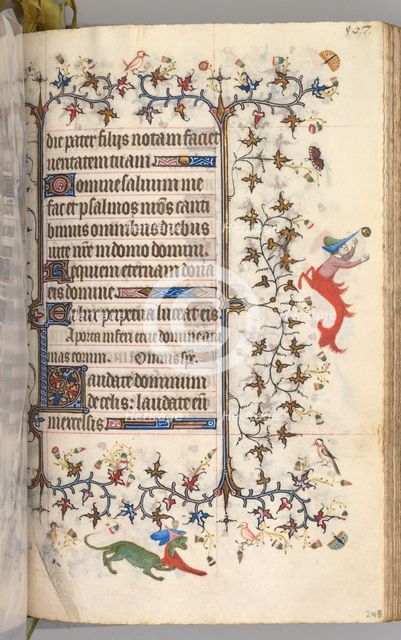 407.
die pater filijs notam faciet
ueritatem tuam.
Domine saluum me
fac et psalmos nr̄os canti
bimus omnibus diebus
uite nr̄e in domo domini.
Requiem eternam dona
eis domine.
Et lux perpetua luceat eis.
A porta inferi erue domine ani
mas eorum.
Laudate dominum
de celis: laudate eū
in excelsis.
248